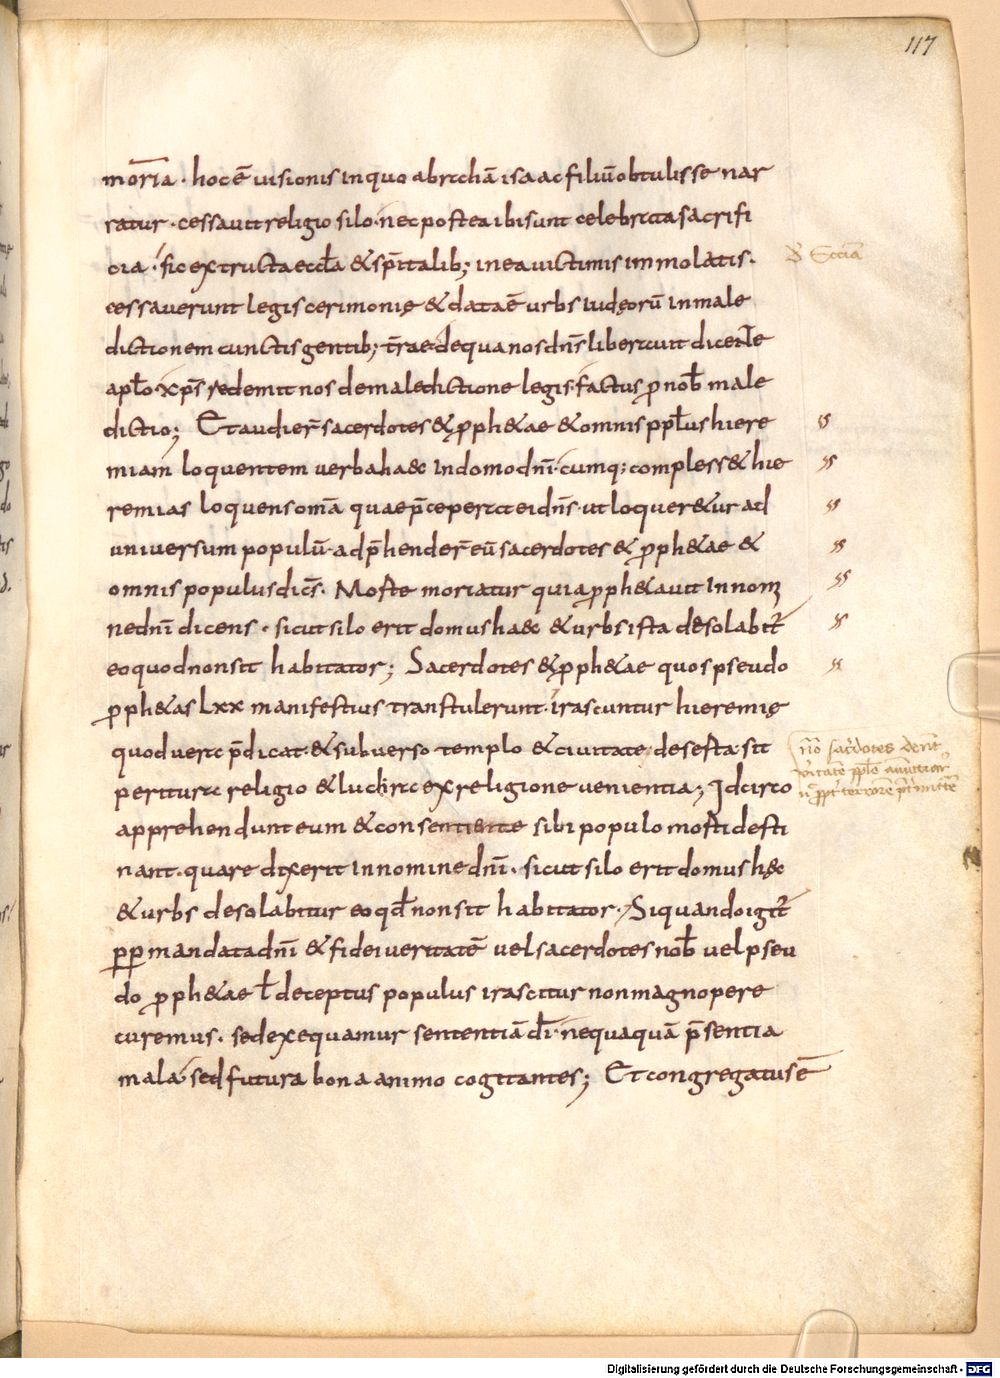 117
moria · hoc ē visionis in quo abrahā isaac filiū obtulisse nar
ratur · cessavit religio silo · nec postea ibi sunt celebrata sacrifi
cia · sic extructa eccła & sp̄italib; in ea victimis immolatis ·
cessaverunt legis cerimonię & data ē urbs iudęorū in male
dictionem cunctis gentib; tr̄ae de qua nos dn̄s liberavit dicente
apło · xp̄s redemit nos de maledictione legis · factus ꝓ nob̄ male
dictio; Et audier̄ sacerdotes & ꝓph&ae & omnis ppłus hiere
miam loquentem verba haec in domo dn̄i · cumq; compless& hie
remias loquens om̄a quae p̄ceperat ei dn̄s · ut loquer&ur ad
universum populū · adp̄hender̄ eū sacerdotes & ꝓph&ae &
omnis populus dicēs · Morte moriatur quia ꝓph&avit in nom
ne dn̄i dicens · sicut silo erit domus haec & urbs ista desolabit̄
eo quod non sit habitator; Sacerdotes & ꝓph&ae quos pseudo
ꝓph&as Lxx manifestius transtulerunt · irascuntur hieremię
quod vera p̄dicat · & subverso templo & civitate deserta sit
peritura religio & lucra ex religione venientia; Idcirco
apprehendunt eum & consentiente sibi populo morti desti
nant · quare dixerit in nomine dn̄i · sicut silo erit domus hęc
& urbs desolabitur eo qđ non sit habitator · Siquando igit̄
ꝓꝑ mandata dn̄i & fidei veritatē vel sacerdotes nob̄ vel pseu
do ꝓph&ae ł deceptus populus irascitur non magnopere
curemus · sed exequamur sententiā dī · nequaquā p̄sentia
mala · sed futura bona animo cogitantes; Et congregatus ē
Digitalisierung gefördert durch die Deutsche Forschungsgemeinschaft - DFG